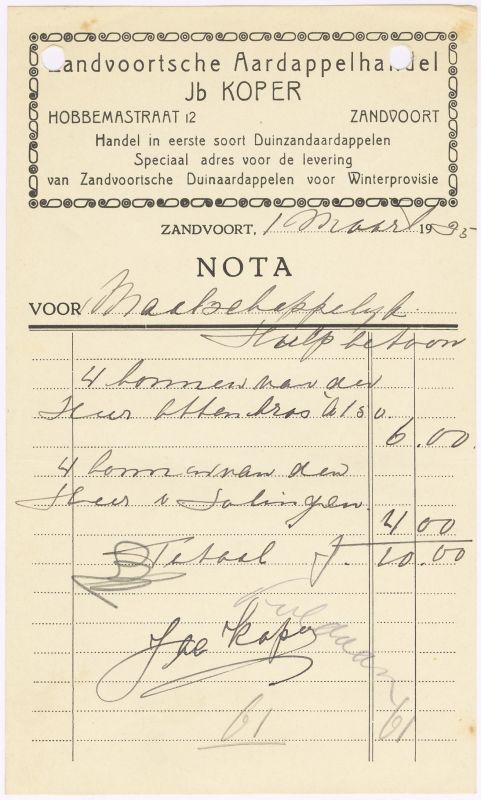 Zandvoortsche Aardappelhandel
Jb KOPER
HOBBEMASTRAAT 12 ZANDVOORT
Handel in eerste soort Duinzandaardappelen
Speciaal adres voor de levering
van Zandvoortsche Duinaardappelen voor Winterprovisie
ZANDVOORT, 1 Maart 1935
NOTA
VOOR Maatschappelyk
Hulpbetoon
4 bonnen van den
Heer Attenbros à 1 50
6.00
4 bonnen van den
Heer v Solingen
4 00
Totaal f. 10.00
Jac Koper
Voldaan
61 61